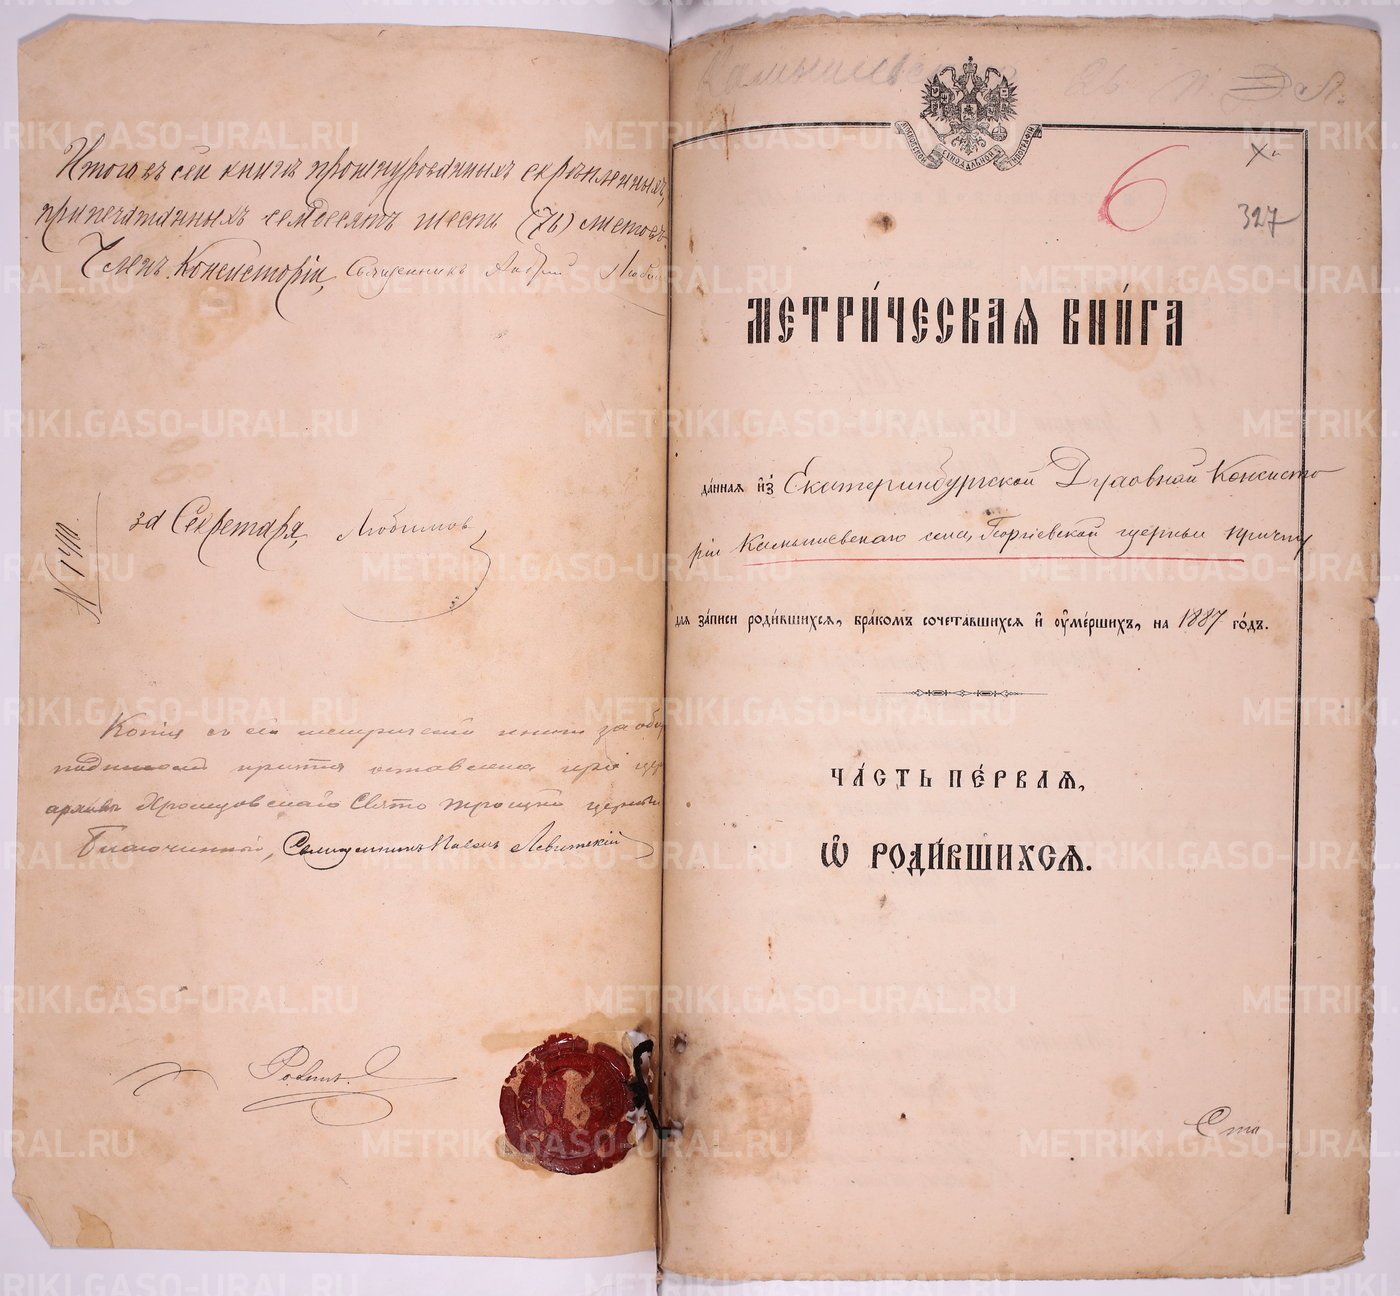 Итого въ сей книгѣ прошнурованныхъ скрѣпленныхъ,
припечатанныхъ семдесятъ шесть (76) листовъ
Членъ Консисторіи, Священникъ
за Секретаря, Любимовъ
Копія съ сей метрической книги за
подписомъ причта оставлена при
архивѣ Свято Троицкой церкви
Благочинный, Священникъ Павелъ Левитскій
6
327
МЕТРИ́ЧЕСКАѦ КНИ́ГА
да́нная и҆з̾ Екатеринбургской Духовной Консисто
ріи Камышевскаго села, Георгіевской церкви причту
для за́писи роди́вшихся, бра́комъ сочета́вшихся и҆ ᲂу҆ме́ршихъ, на 1887 го́дъ.
ЧА́СТЬ ПЕ́РВАѦ,
Ѽ РОДИ́ВШИХСѦ.
Сто
METRIKI.GASO-URAL.RU